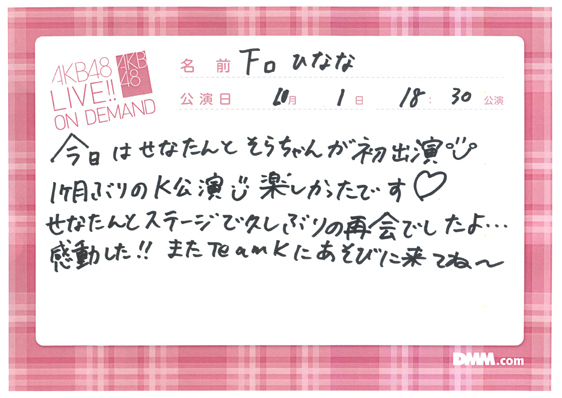 AKB48
LIVE!!
ON DEMAND
AKB
48
名 前 下口ひなな
公演日 10月 1日 18:30 公演
今日はせなたんとそらちゃんが初出演
1ヶ月ぶりのK公演 楽しかったです♡
せなたんとステージで久しぶりの再会でしたよ…
感動した!! またTeamKにあそびに来てね〜
DMM.com